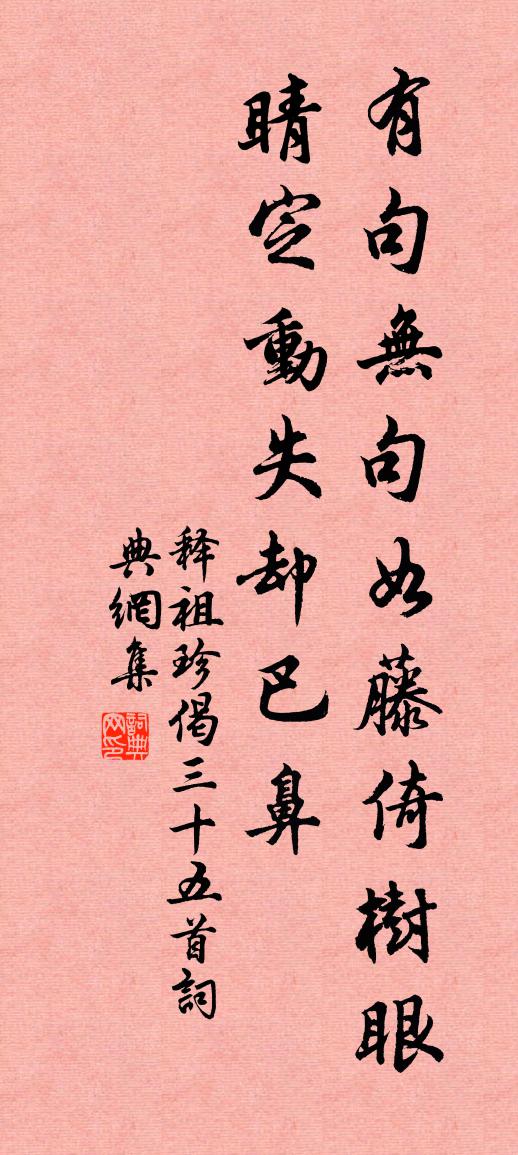 有句無句如藤倚樹眼
睛定動失却巴鼻
释祖珍偈三十五首詞
典網集
詞典網印